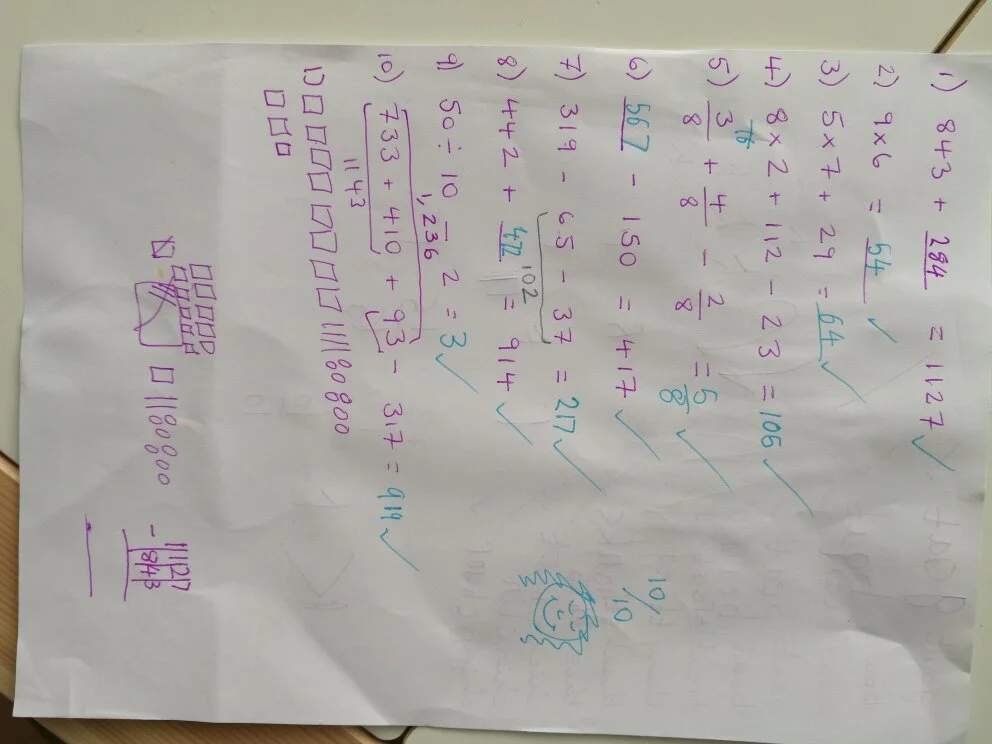 1) 843 + 284 = 1127 ✓
2) 9 × 6 = 54 ✓
3) 5 × 7 + 29 = 64 ✓
4) 8 × 2 + 112 - 23 = 105 ✓
16
5) 3/8 + 4/8 - 2/8 = 5/8 ✓
6) 567 - 150 = 417 ✓
7) 319 - 65 - 37 = 217 ✓
102
8) 442 + 472 = 914 ✓
9) 50 ÷ 10 - 2 = 3 ✓
1,236
10) 733 + 410 + 93 - 317 = 919 ✓
1143
10/10
1)
1127
- 843